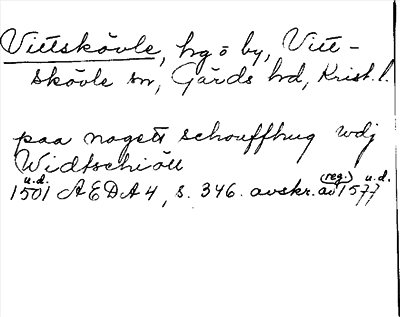 Vittskövle, hg o by, Vitt-
skövle sn, Gärds hd, Krist. l.
paa nogett schouffhug wdj
Widtschiöll
u.d. (reg.) u.d.
1501 AEDA 4, s. 346. avskr. av 1577